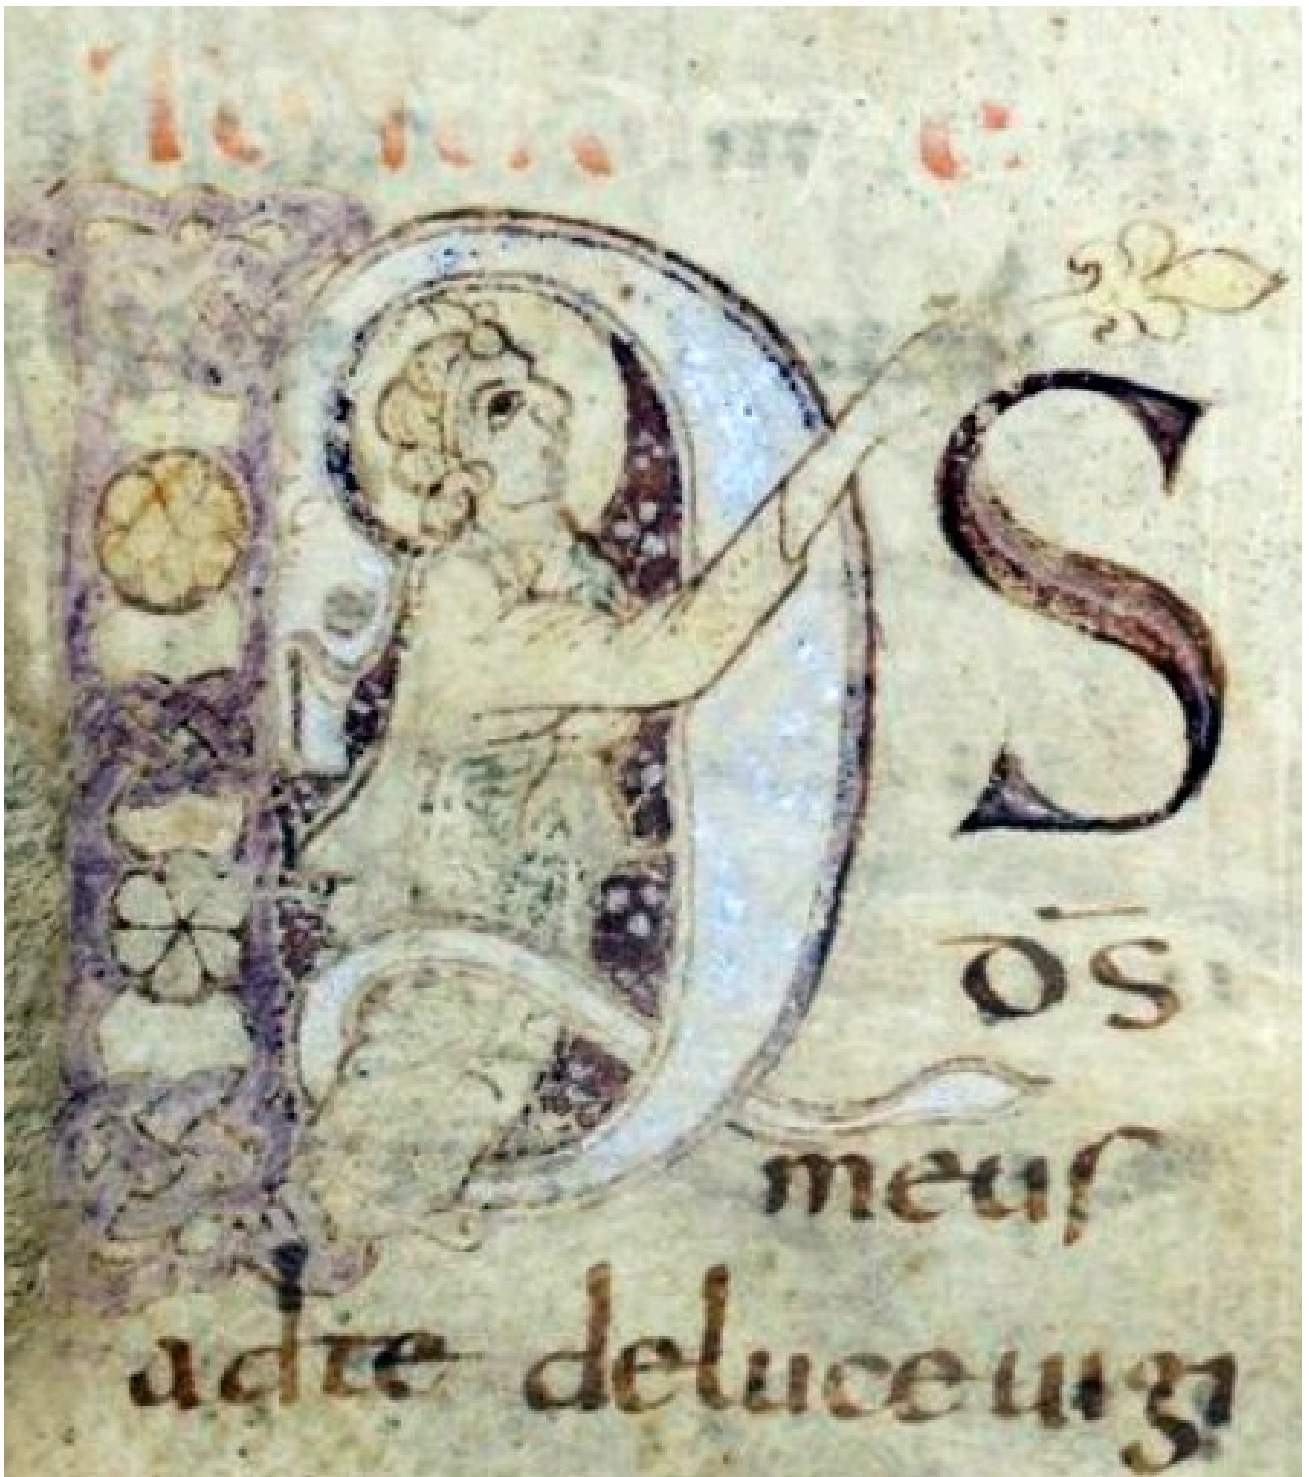 DS
d̄s
meus
adte deluceuigi